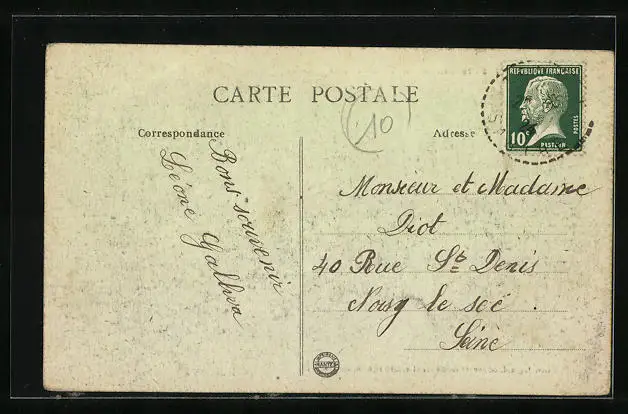 CARTE POSTALE
(10)
Correspondance
Adresse
REPVBLIQUE FRANÇAISE
10c
POSTES
PASTEUR
Bons souvenir
Léone Galliva
Monsieur et Madame
Diot
40 Rue St Denis
Noisy le sec.
Seine